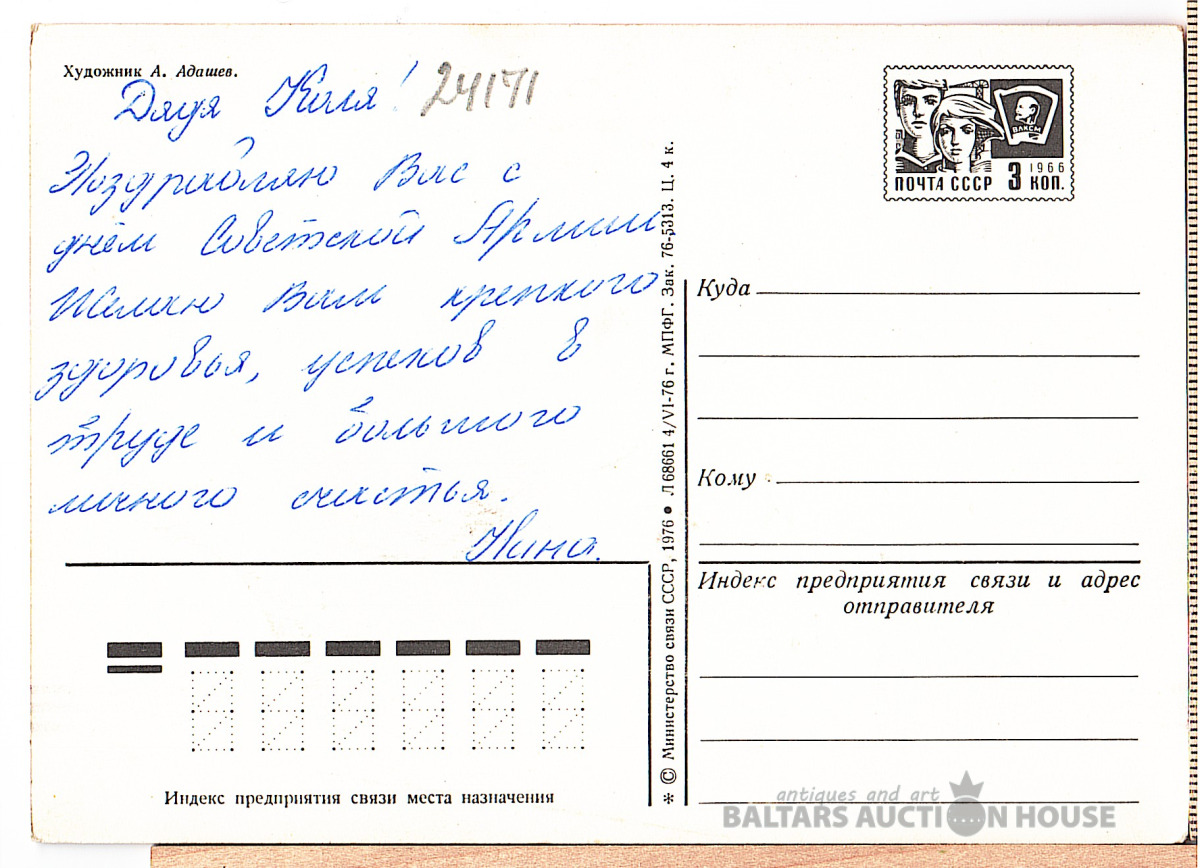 Художник А. Адашев.
Дядя Коля!
24171
Поздравляю Вас с
днём Советской Армии,
Желаю Вам крепкого
здоровья, успехов в
труде и большого
личного счастья.
Нина.
Индекс предприятия связи места назначения
* © Министерство связи СССР, 1976 • Л68661 4/VI-76 г. МПФГ. Зак. 76-5313. Ц. 4 к.
ВЛКСМ
ПОЧТА СССР 3 1966 КОП.
Куда
Кому
Индекс предприятия связи и адрес
отправителя
antiques and art
BALTARS AUCTION HOUSE